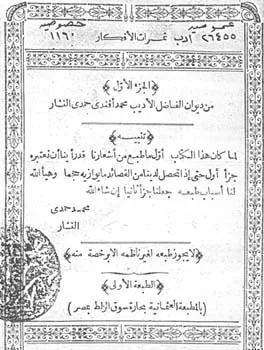 عمومية خصوصية
٢٦٤٥٥ أدب ثمرات الأفكار ١١٦٠
﴿الجزء الأول﴾
من ديوان الفاضل الأديب محمد أفندى حمدى النشار
﴿تنبيه﴾
لما كان هذا الكتاب أول ما طبع من أشعارنا قدر أبنا أن نعتبره
جزأ أول حتى إذا تحصل لدينا من القصائد ما يوازيه حجما وهيأ الله
لنا أسباب طبعه جعلناه جزأ ثانيا إن شاء الله
محمد حمدى
النشار
﴿لا يجوز طبعه لغير ناظمه الا برخصة منه﴾
﴿الطبعة الأولى﴾
(بالمطبعة العثمانية بحارة سوق الزلط بمصر)